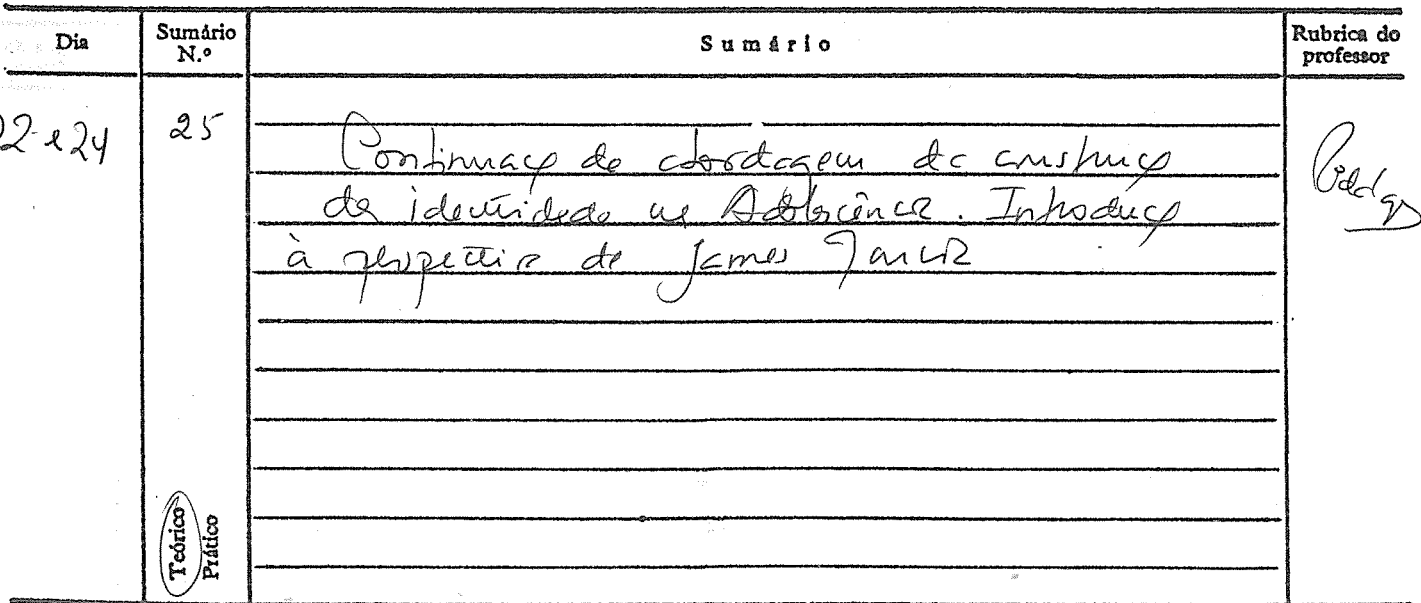 Dia Sumário N.º Sumário Rubrica do professor
22 e 24 25
Continuação da abordagem da construção
da identidade na Adolescência. Introdução
à perspectiva de James Marcia
Teórico
Prático